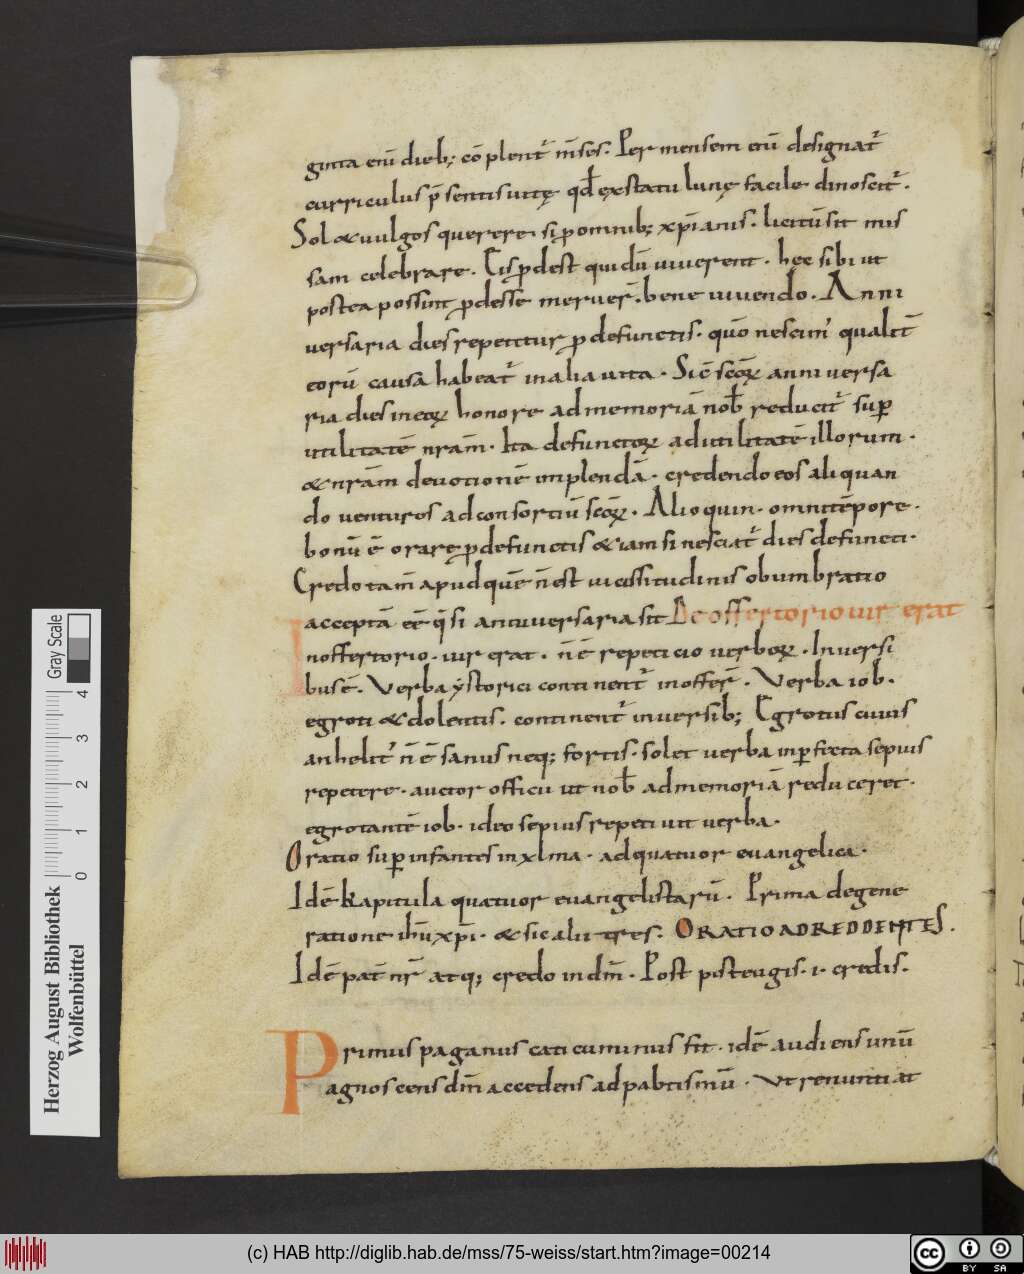 ginta eni᷒ dieb; cōplent᷒ m̄ses. Per mensem eni᷒ designat᷒
curriculus p̄sentis uitę qd̄ ex statu lunę facile dinoscit᷒.
Sol& uulgos querere. si ꝑ omnib; xp̄ianis. licitū sit mis
sam celebrare. Eis ꝓdest qui dū uiuerent. hęc sibi ut
postea possint ꝓdesse meruer̄. bene uiuendo. Anni
uersaria dies repetitur ꝓ defunctis. quō nescim᷒ qualit̄
eorū causa habeat᷒ in alia uita. Sic̄ scōꝝ anniuersa
ria dies in eoꝝ honore ad memoriā nob̄ reducit᷒ sup̱
utilitatē nrām. Ita defunctoꝝ ad utilitatē illorum.
& nrām deuotionē implendā. credendo eos aliquan
do uenturos ad consortiū scōꝝ. Alioquin. omni tēpore.
bonū ē orare ꝓ defunctis &iam si nesciat᷒ dies defuncti.
Credo tam̄ apud quē n̄ est uicissitudinis obumbratio
acceptā eē q̄si anniuersaria sit De offertorio uir erat
In offertorio. uir erat. n̄ ē repeticio uerboꝝ. In uersi
bus ē. Verba ystorici continent᷒ in offer̄. Verba iob.
egroti & dolentis. continent᷒ in uersib; Egrotus cuius
anhelit᷒ n̄ ē sanus neq; fortis. solet uerba inperfecta sepius
repetere. auctor officii ut nob̄ ad memoriā reduceret.
egrotantē iob. ideo sepius repetiuit uerba.
Oratio sup̱ infantes in xlma. ad quatuor euangelica.
Idē kapitula quatuor euangelistarū. Prima de gene
ratione ihū xp̄i. & sic alii tres. ORATIO AD REDDENTES.
Idē pat̄ nr̄ atq; credo in dm̄. Post pisteugis. i. credis.
Primus paganus caticuminus fit. idē audiens unū
agnoscens dm̄ accedens ad pabtismū. Vt renuntiat
Gray Scale
0 1 2 3 4
Herzog August Bibliothek
Wolfenbüttel
(c) HAB http://diglib.hab.de/mss/75-weiss/start.htm?image=00214
cc BY SA